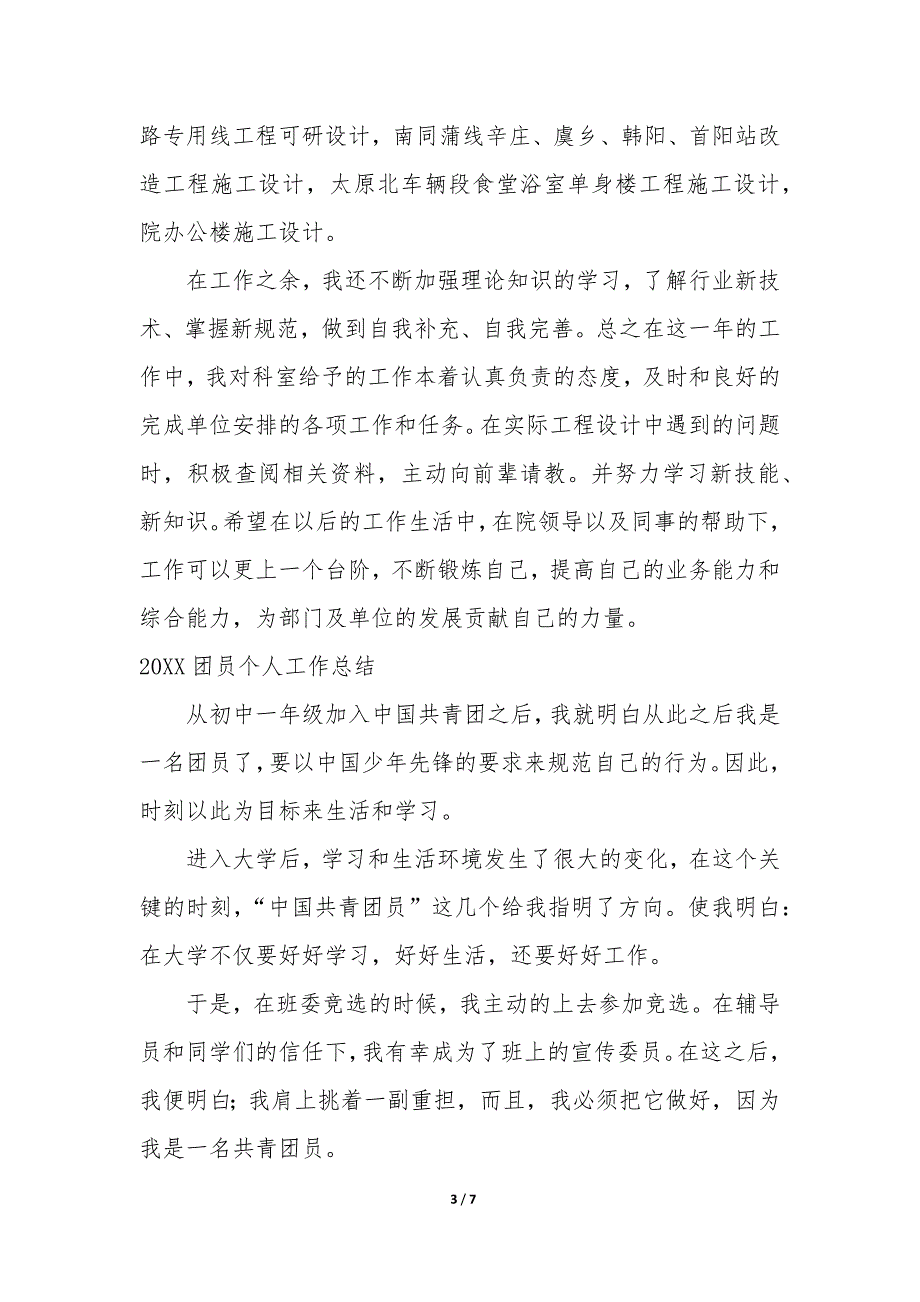 路专用线工程可研设计，南同蒲线辛庄、虞乡、韩阳、首阳站改
造工程施工设计，太原北车辆段食堂浴室单身楼工程施工设计，
院办公楼施工设计。
在工作之余，我还不断加强理论知识的学习，了解行业新技
术、掌握新规范，做到自我补充、自我完善。总之在这一年的工
作中，我对科室给予的工作本着认真负责的态度，及时和良好的
完成单位安排的各项工作和任务。在实际工程设计中遇到的问题
时，积极查阅相关资料，主动向前辈请教。并努力学习新技能、
新知识。希望在以后的工作生活中，在院领导以及同事的帮助下，
工作可以更上一个台阶，不断锻炼自己，提高自己的业务能力和
综合能力，为部门及单位的发展贡献自己的力量。
20XX 团员个人工作总结
从初中一年级加入中国共青团之后，我就明白从此之后我是
一名团员了，要以中国少年先锋的要求来规范自己的行为。因此，
时刻以此为目标来生活和学习。
进入大学后，学习和生活环境发生了很大的变化，在这个关
键的时刻，“中国共青团员”这几个给我指明了方向。使我明白：
在大学不仅要好好学习，好好生活，还要好好工作。
于是，在班委竞选的时候，我主动的上去参加竞选。在辅导
员和同学们的信任下，我有幸成为了班上的宣传委员。在这之后，
我便明白；我肩上挑着一副重担，而且，我必须把它做好，因为
我是一名共青团员。
3 / 7